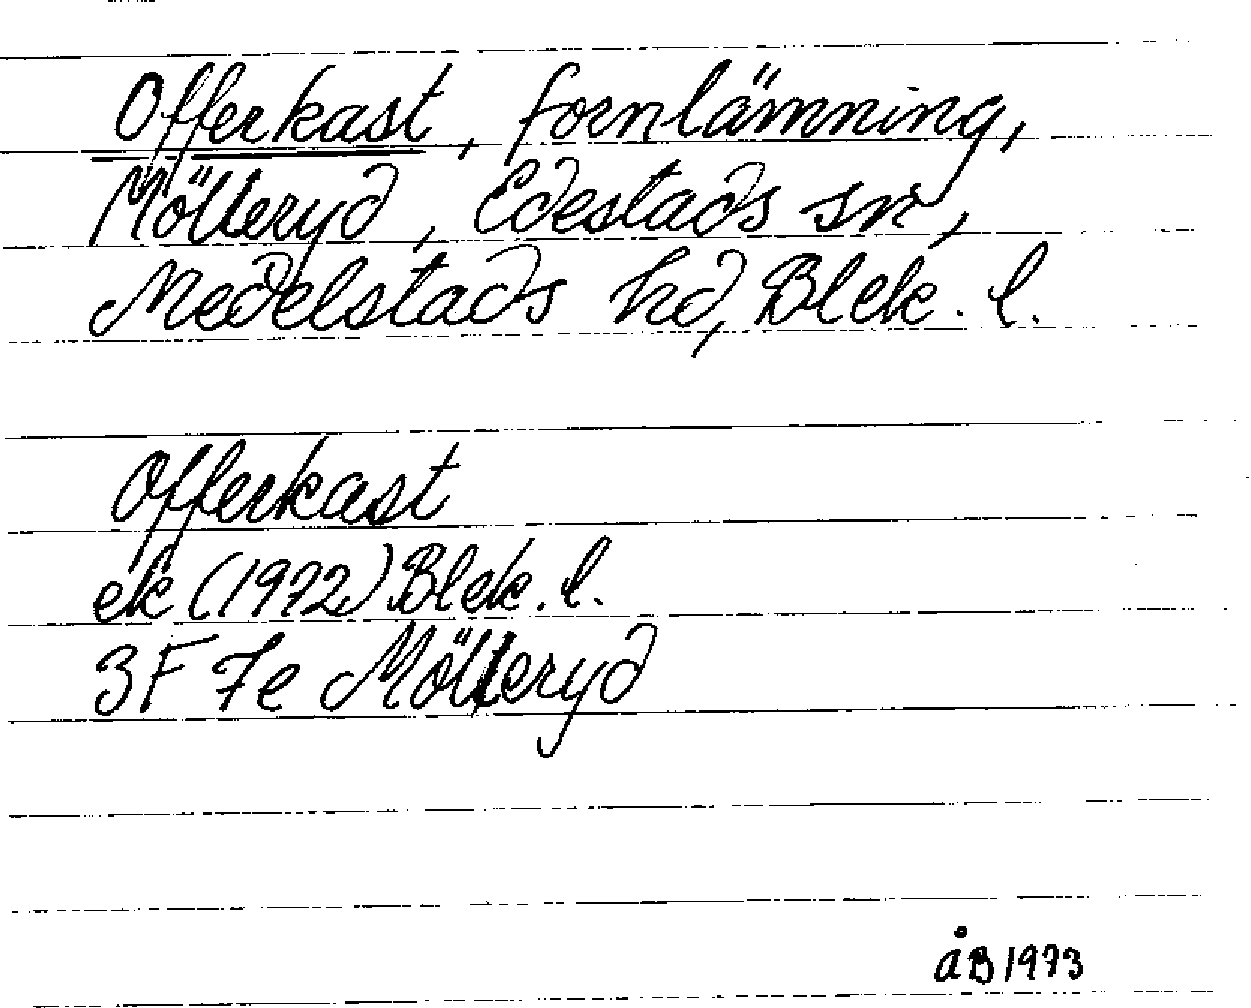 Offerkast, fornlämning,
Mölleryd, Edestads sn,
Medelstads hd, Blek. l.
Offerkast
ek (1972) Blek. l.
3F 7e Mölleryd
åB 1973